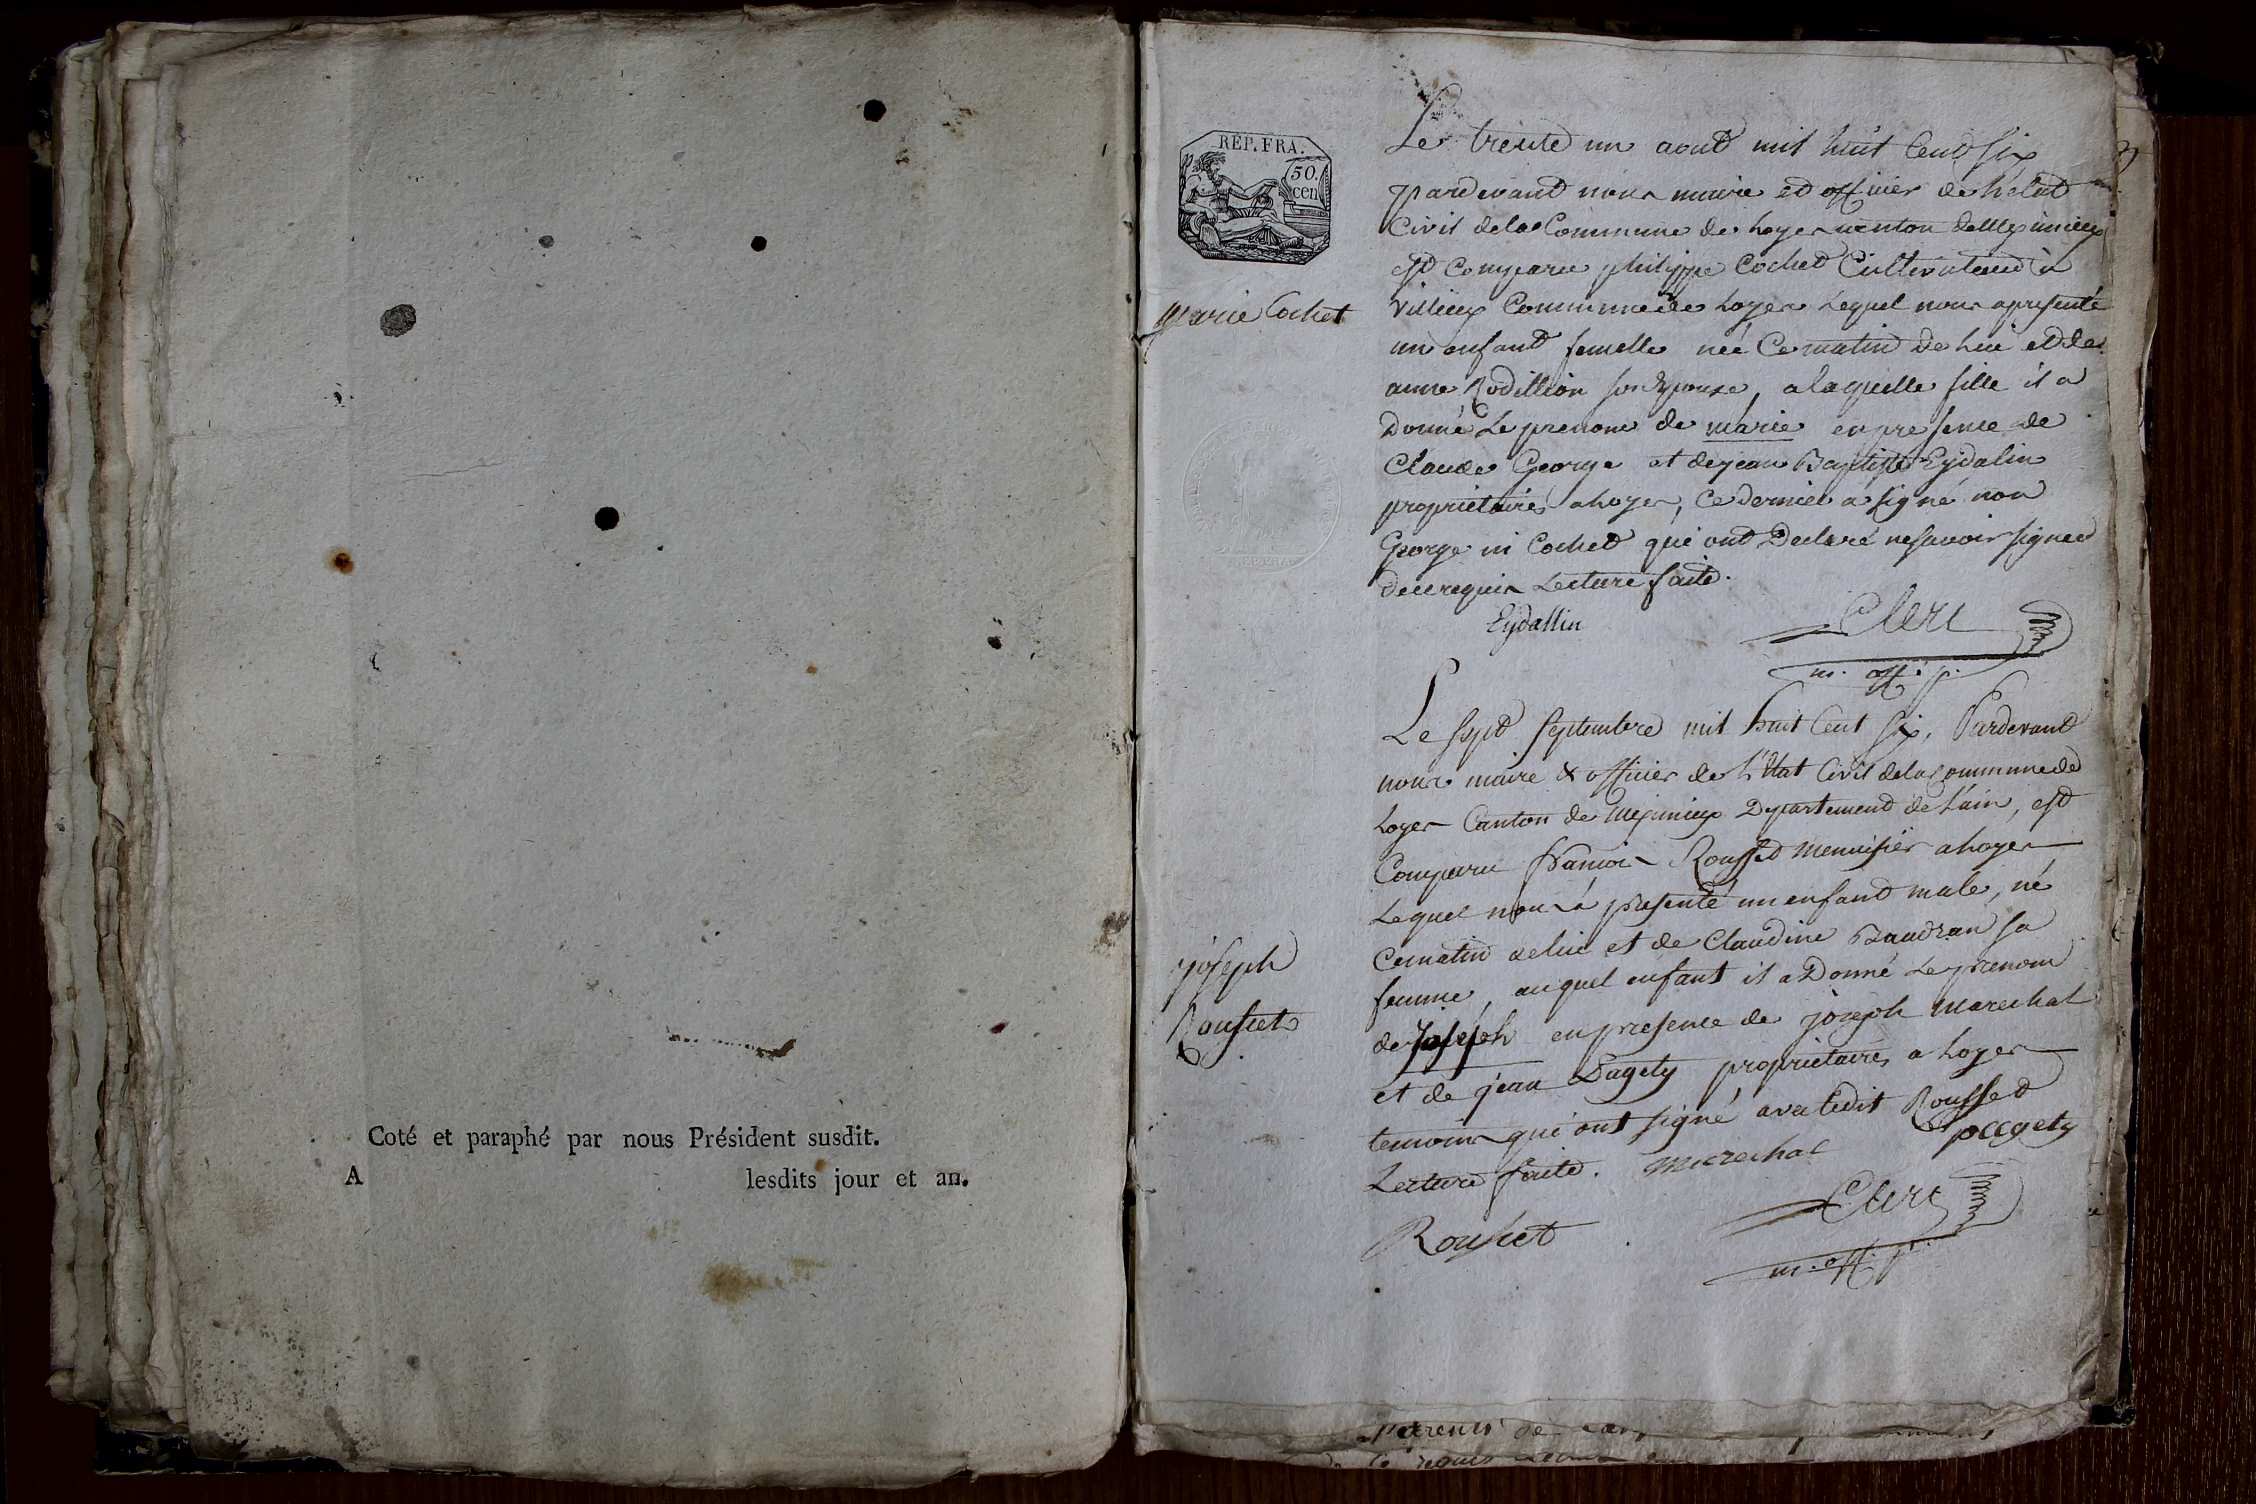 Coté et paraphé par nous Président susdit.
A lesdits jour et an.
REP. FRA.
50.
cen
Le trente un aout mil huit Cent Six
pardevant nous maire et officier de L'etat
Civil dela Commune de Loyes canton de Meximieux
est Comparu philippe Cochet Cultivateur à
Villieux Commune de Loyes Lequel nous apresenté
marie Cochet
un enfant femelle née Ce matin de Lui et de
anne Rodillion son Epouse, a laquelle fille il a
Donné Le prenom de marie en presence de
Claude George et de jean Baptiste Eydalin
proprietaires a Loyes, Ce dernier a signé non
George ni Cochet qui ont Declaré ne savoir signer
de ce requis Lecture faite.
Eydallin
Clerc
m. off. p.
Le Sept Septembre mil huit Cent Six, Pardevant
nous maire & officier de L'Etat Civil dela Commune de
Loyes Canton de Meximieux Departement de L'ain, est
Comparu francois Rousset Menuisier a Loyes
Lequel nous à presenté un enfant male, né
Cematin de Lui et de Claudine Baudran sa
femme, auquel enfant il a Donné Le prenom
joseph
Rousset
de Joseph en presence de joseph Marechal
et de jean Pagety proprietaires a Loyes
temoins qui ont signé avec Ledit Rousset
Lecture faite. marechal pagety
Rousset
Clerc
m. off. p.